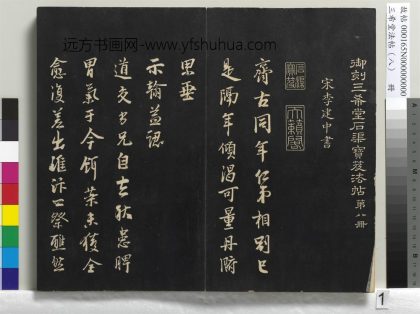 远方书画网-www.yfshuhua.com
故帖 000165N000000000
三希堂法帖（八） 冊
御刻三希堂石渠寶笈法帖第八冊
宋李建中書
齊古同年仁弟相別已
是隔年傾渴可量丹腑
思垂
示翰益認
道交 兄自去秋患脾
胃氣于今餌藥未獲全
愈復差出 汴 祭醮
1